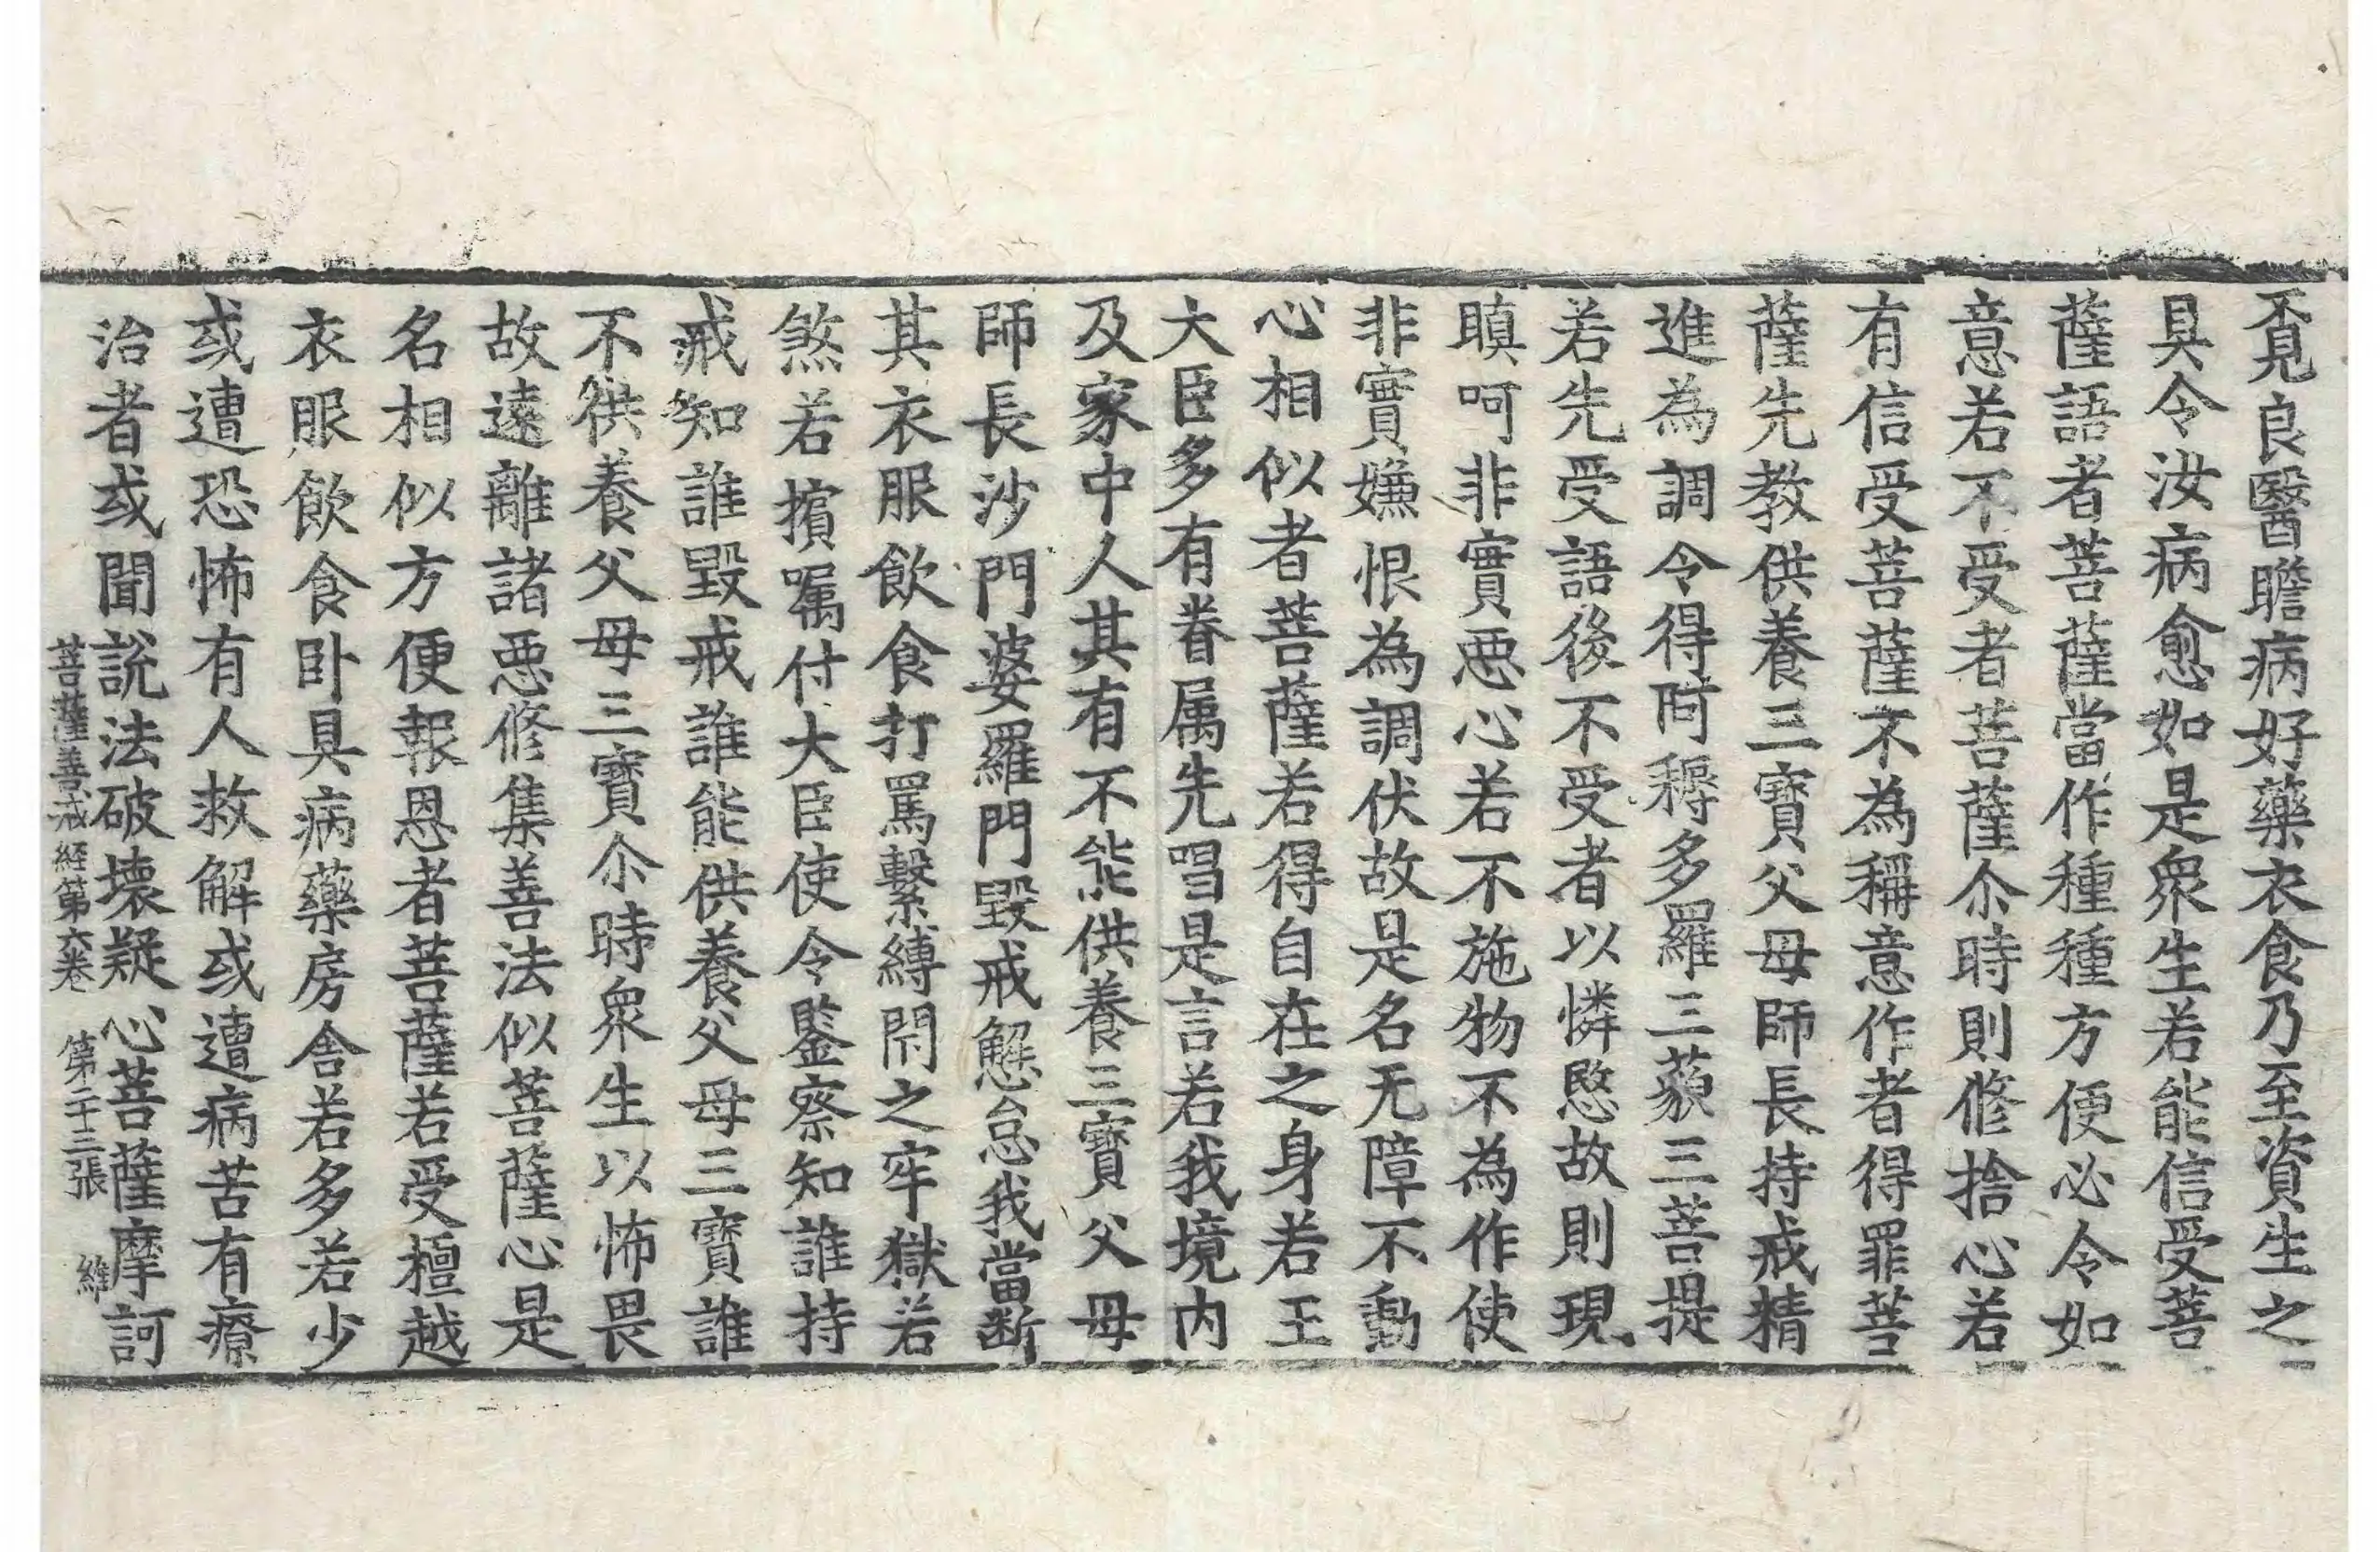 覔良醫瞻病好藥衣食乃至資生之
具令汝病愈如是衆生若能信受菩
薩語者菩薩當作種種方便必令如
意若不受者菩薩尒時則修捨心若
有信受菩薩不為稱意作者得罪菩
薩先教供養三寶父母師長持戒精
進為調令得阿耨多羅三藐三菩提
若先受語後不受者以憐愍故則現
瞋呵非實惡心若不施物不為作使
非實嫌恨為調伏故是名无障不動
心相似者菩薩若得自在之身若王
大臣多有眷属先唱是言若我境内
及家中人其有不能供養三寶父母
師長沙門婆羅門毀戒懈怠我當断
其衣服飲食打罵繫縛閇之牢獄若
煞若擯嘱付大臣使令鑒察知誰持
戒知誰毀戒誰能供養父母三寶誰
不供養父母三寶尒時衆生以怖畏
故遠離諸惡修集善法似菩薩心是
名相似方便報恩者菩薩若受檀越
衣服飲食卧具病藥房舍若多若少
或遭恐怖有人救解或遭病苦有療
治者或聞說法破壊疑心菩薩摩訶
菩薩善戒経第六卷 第二十三張 維